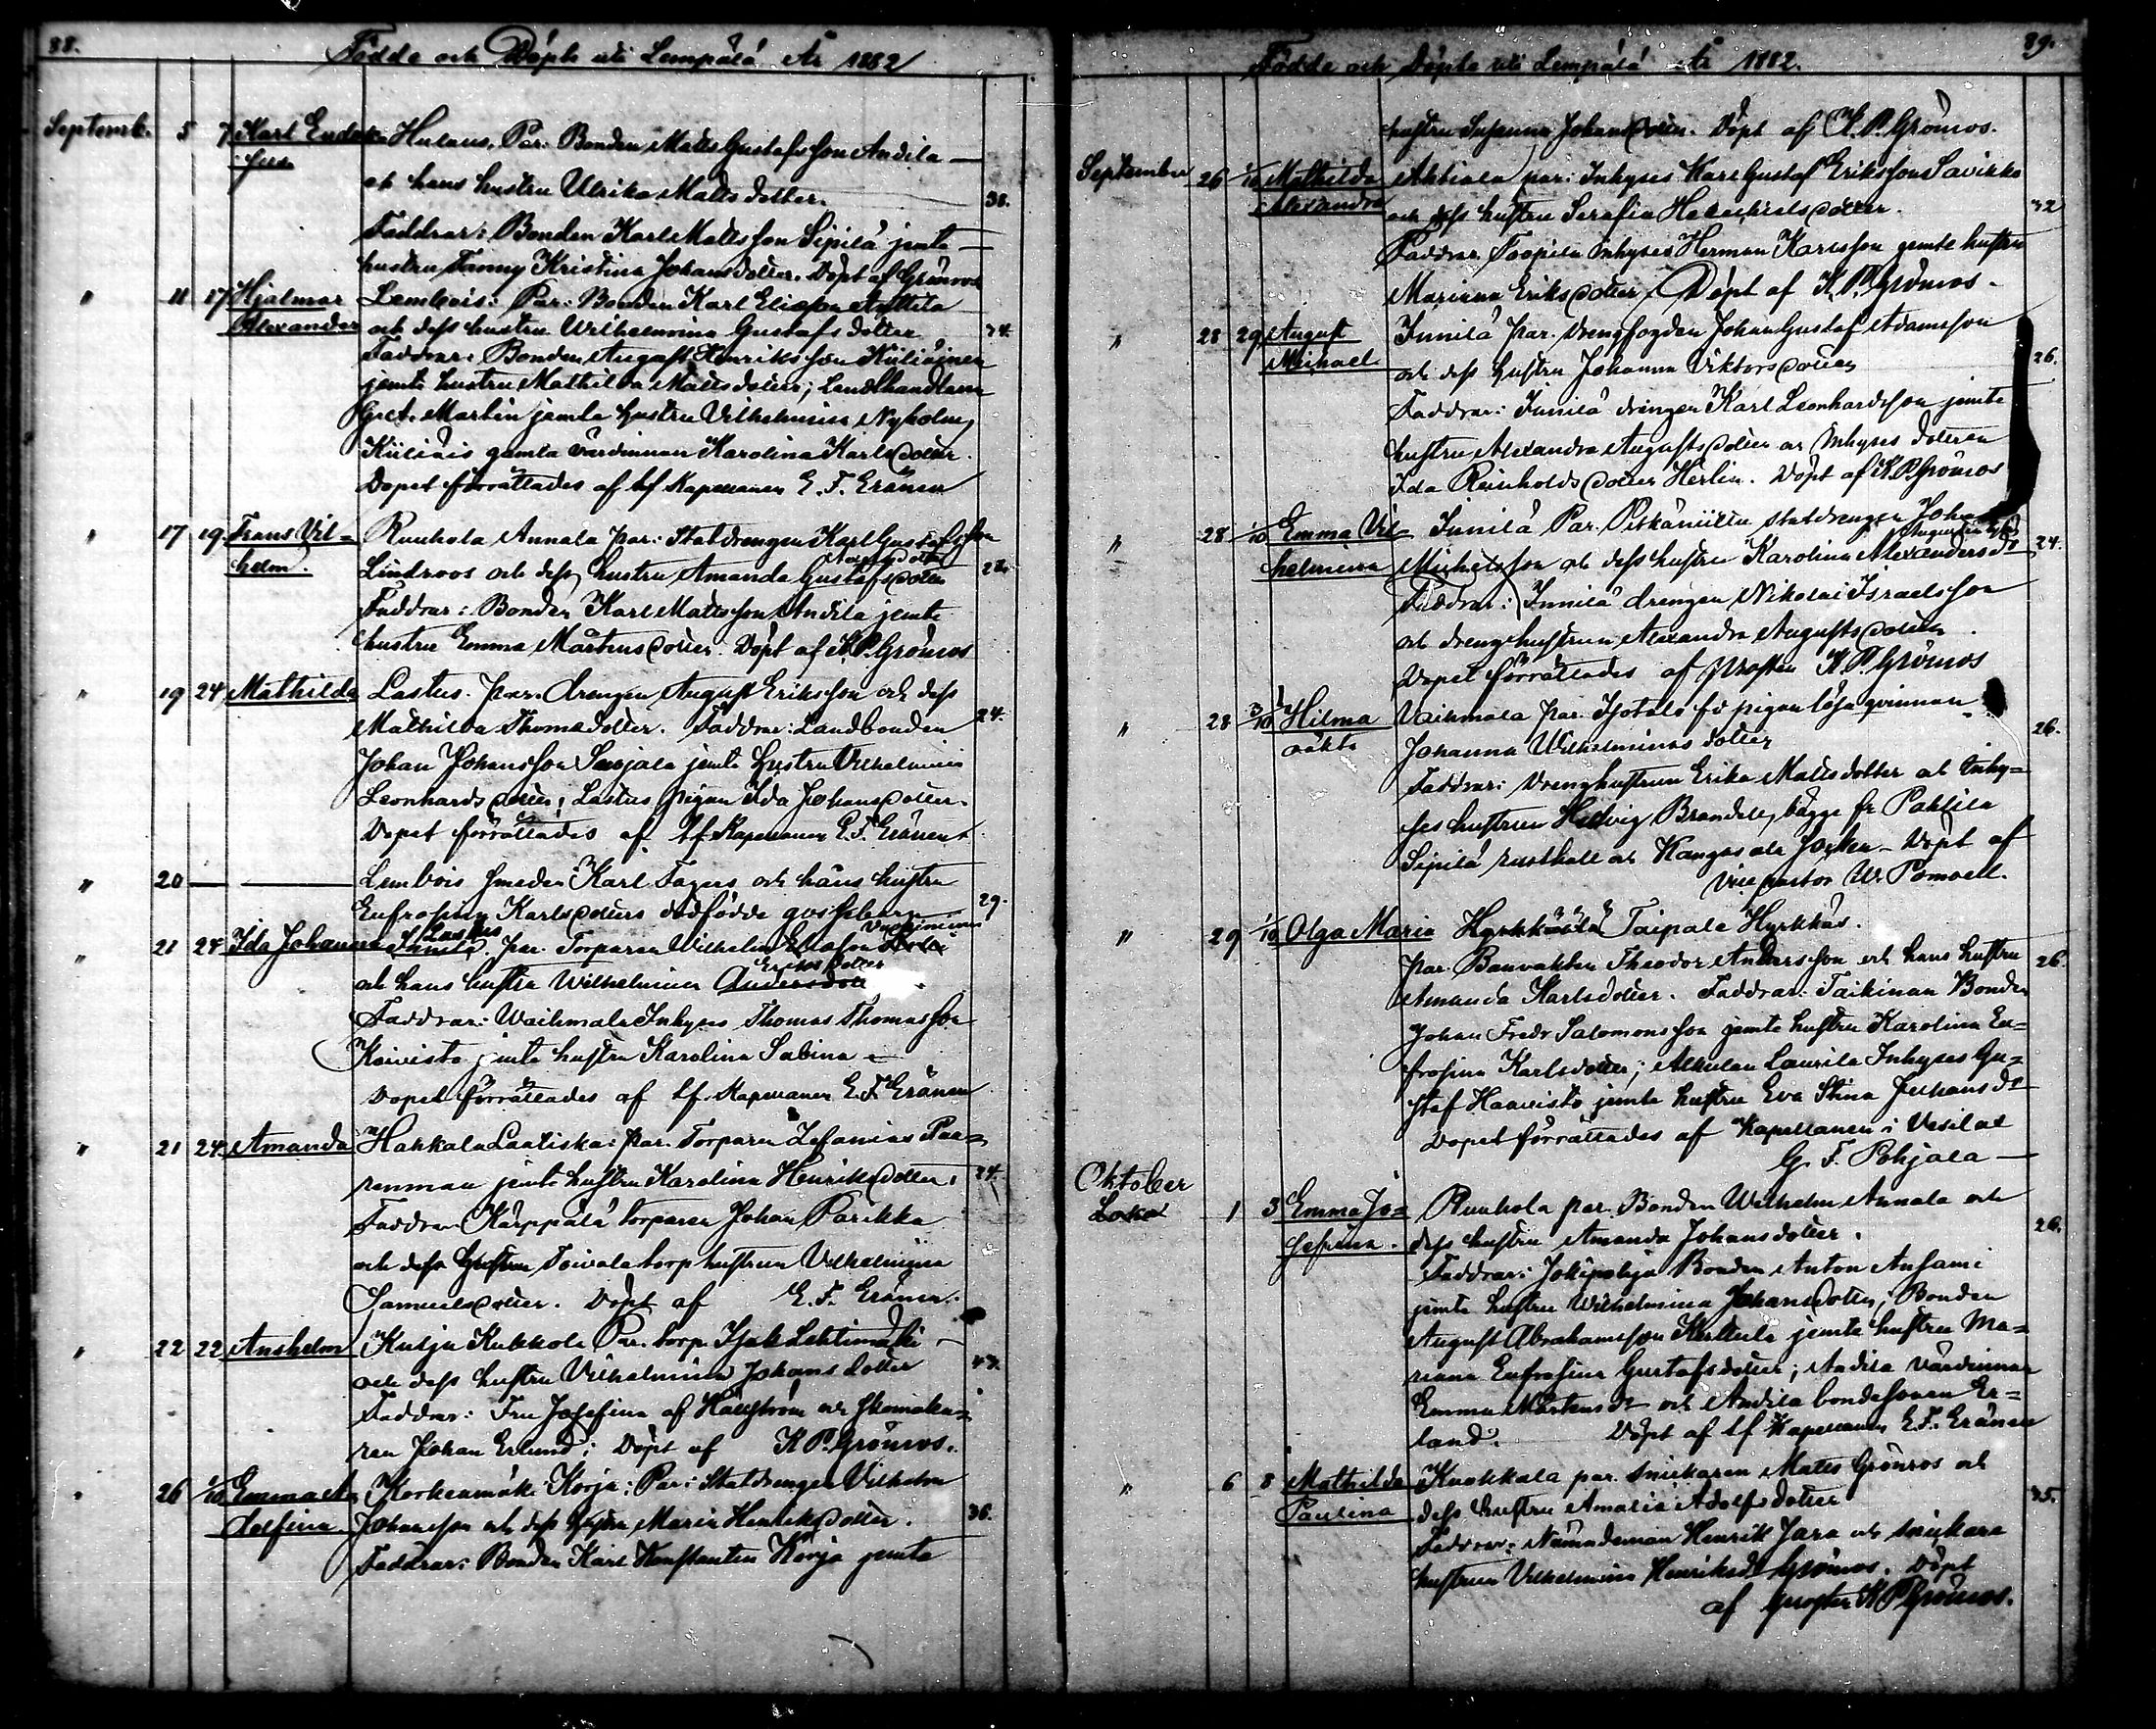 88.
Födde och Döpte uti Lempälä År 1882
Septemb. 5 7 Karl
Hulaus. Par: Bonden Matts Gustafsson Andila
och hans hustru Ulrika Matts dotter. 38.
Faddrar: Bonden Karl Mattsson Sipilä jemte
hustru Fanny Kristina Johansdotter. Döpt af Grönros
" 11 17 Hjalmar Lembois: Par: Bonden Karl Eliasson Anttila
Alexander och dess hustru Wilhelmina Gustafs dotter 34.
Faddrar: Bonden August Henriksson Kuliainen
jemte hustru Mathilda Mattsdotter; Landthandlaren
Martin jemte hustru Vilhelmina Nyholm,
gamla värdinnan Karolina Karlsdotter.
Dopet förrättades af tf Kapellanen E. F. Eränen
" 17 19 Frans Vil- Ruuhola Annala par: Statdrengen Karl Gustafsson
helm. Lindroos och dess hustru Amanda Gustafsdotter
Faddrar: Bonden Karl Mattsson Andila jemte
hustru Emma Mårtensdotter. Döpt af K.P. Grönros
" 19 24 Mathilda Lastus. par. drengen August Eriksson och dess
Mathilda Thomasdotter. Faddrar: Landbonden 24.
Johan Johansson jemte hustru Vilhelmina
Leonhardsdotter; Lastus pigan Ida Johansdotter.
Dopet förrättades af tf Kapellanen E.F. Eränen
" 20 Lembois smeden Karl Fagers och hans hustru
Eufrosina Karlsdotters dödfödde gossebarn 29.
Lastus
" 21 24 Ida Johanna par. Torparen Wilhelm
Eriksdotter
och hans hustru Wilhelmina Andersdott
Faddrar: Waihmala Inhyses Thomas Thomasson
Koivisto jemte hustru Karolina Sabina
Dopet förrättades af tf. Kapellanen E.F. Eränen
" 21 24 Amanda Hakkala Laatiska: par. Torparen Zefanias Paa-
renmaa jemte hustru Karolina Henriksdotter. 24.
Faddrar Kärppälä torparen Johan Parikka
och dess hustru Toivola torp hustrun Vilhelmina
Samuelsdotter. Döpt af E. F. Eränen.
" 22 22 Anshelm Kulju Kukkola Par. torp. Isak Lehtimäki
och dess hustru Vilhelmina Johans dotter 43.
Faddrar: Fru Josefina af Hällström och skomaka-
ren Johan Erlund; Döpt af K P. Grönros.
26 1/10 Emma A- Korkeamäki Korja: Par: Statdrengen Vilhelm
dolfina Johansson och dess hustru Maria Henriksdotter. 36.
Faddrar: Bonden Karl Konstantin Korja jemte
89.
Födde och Döpte uti Lempälä År 1882.
hustru Susanna Johansdotter. Döpt af K. P. Grönros.
September 26 1/10 Mathilda par: Inhyses Karl Gustaf Eriksson Savikko
Alexandra och dess hustru Serafia Heikintdotter. 32
Faddrar Inhyses Herman Karlsson jemte hustru
Marianna Eriksdotter. Döpt af K. P. Grönros.
" 28 29 August Innilä par. drengfogden Johan Gustaf Adamsson
Mikael och dess hustru Johanna Viktorsdotter 26.
Faddrar: Innilä drengen Karl Leonhardsson jemte
hustru Alexandra Augustsdotter och Inhyses dottern
Ida Reinholdsdotter Herlin. Döpt af K.P. Grönros
" 28 1/10 Emma Vil- Innilä Par. statdrengen Johan
helmina Michelsson och dess hustru Karolina Alexandersdr 24.
Faddrar: Innilä drengen Nikolai Israelsson
och drenghustrun Alexandra Augustsdotter
Dopet förrättades af Prosten K.P. Grönros
" 28 3/10 Hilma Vaihmala par. Isotalo fd pigan lösa qvinnan
oäkta Johanna Wilhelmina dotter 26.
Faddrar: Drenghustrun Erika Mattsdotter och Inhy-
ses hustrun Hedvig Brandell, bägge fr Pahlila
Sipilä rusthåll och Kangasala socken. Döpt af
Vice pastor W. Pomoell.
" 29 1/10 Olga Maria Taipale Hyrkkäs.
par. Banvakten Theodor Andersson och hans hustru 26.
Amanda Karlsdotter. Faddrar: Taikinan Bonden
Johan Fredr Salomonsson jemte hustru Karolina Eu-
frosina Karlsdotter; Alkulan Laurila Inhyses Gu-
staf Haavisto jemte hustru Eva Stina Johansdr
Dopet förrättades af Kapellanen i Vesilax
G. F. Pohjala
Oktober
1 3 Emma Jo- Ruuhola par. Bonden Wilhelm Annala och
sefina. dess hustru Amanda Johansdotter. 26.
Faddrar: Jokipohja Bonden Anton Ansami
jemte hustru Wilhelmina Johansdotter, Bonden
August Abrahamsson Kerttula jemte hustru Ma-
riana Eufrosina Gustafsdotter; Andila värdinnan
Emma Mårtensdr och Andila bondesonen Er-
land. Döpt af tf Kapellanen E.F. Eränen
" 6 8 Mathilda Kuokkala par. snickaren Matts Grönros och
Paulina dess hustru Amalia Adolfsdotter 35.
Faddrar: Nämndeman Henrik Jara och snickare
hustrun Vilhelmina Henriksdr Grönros. Döpt
af prosten K P Grönros.